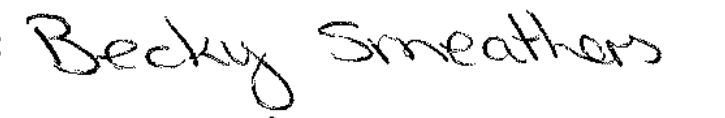 Becky Smeathers